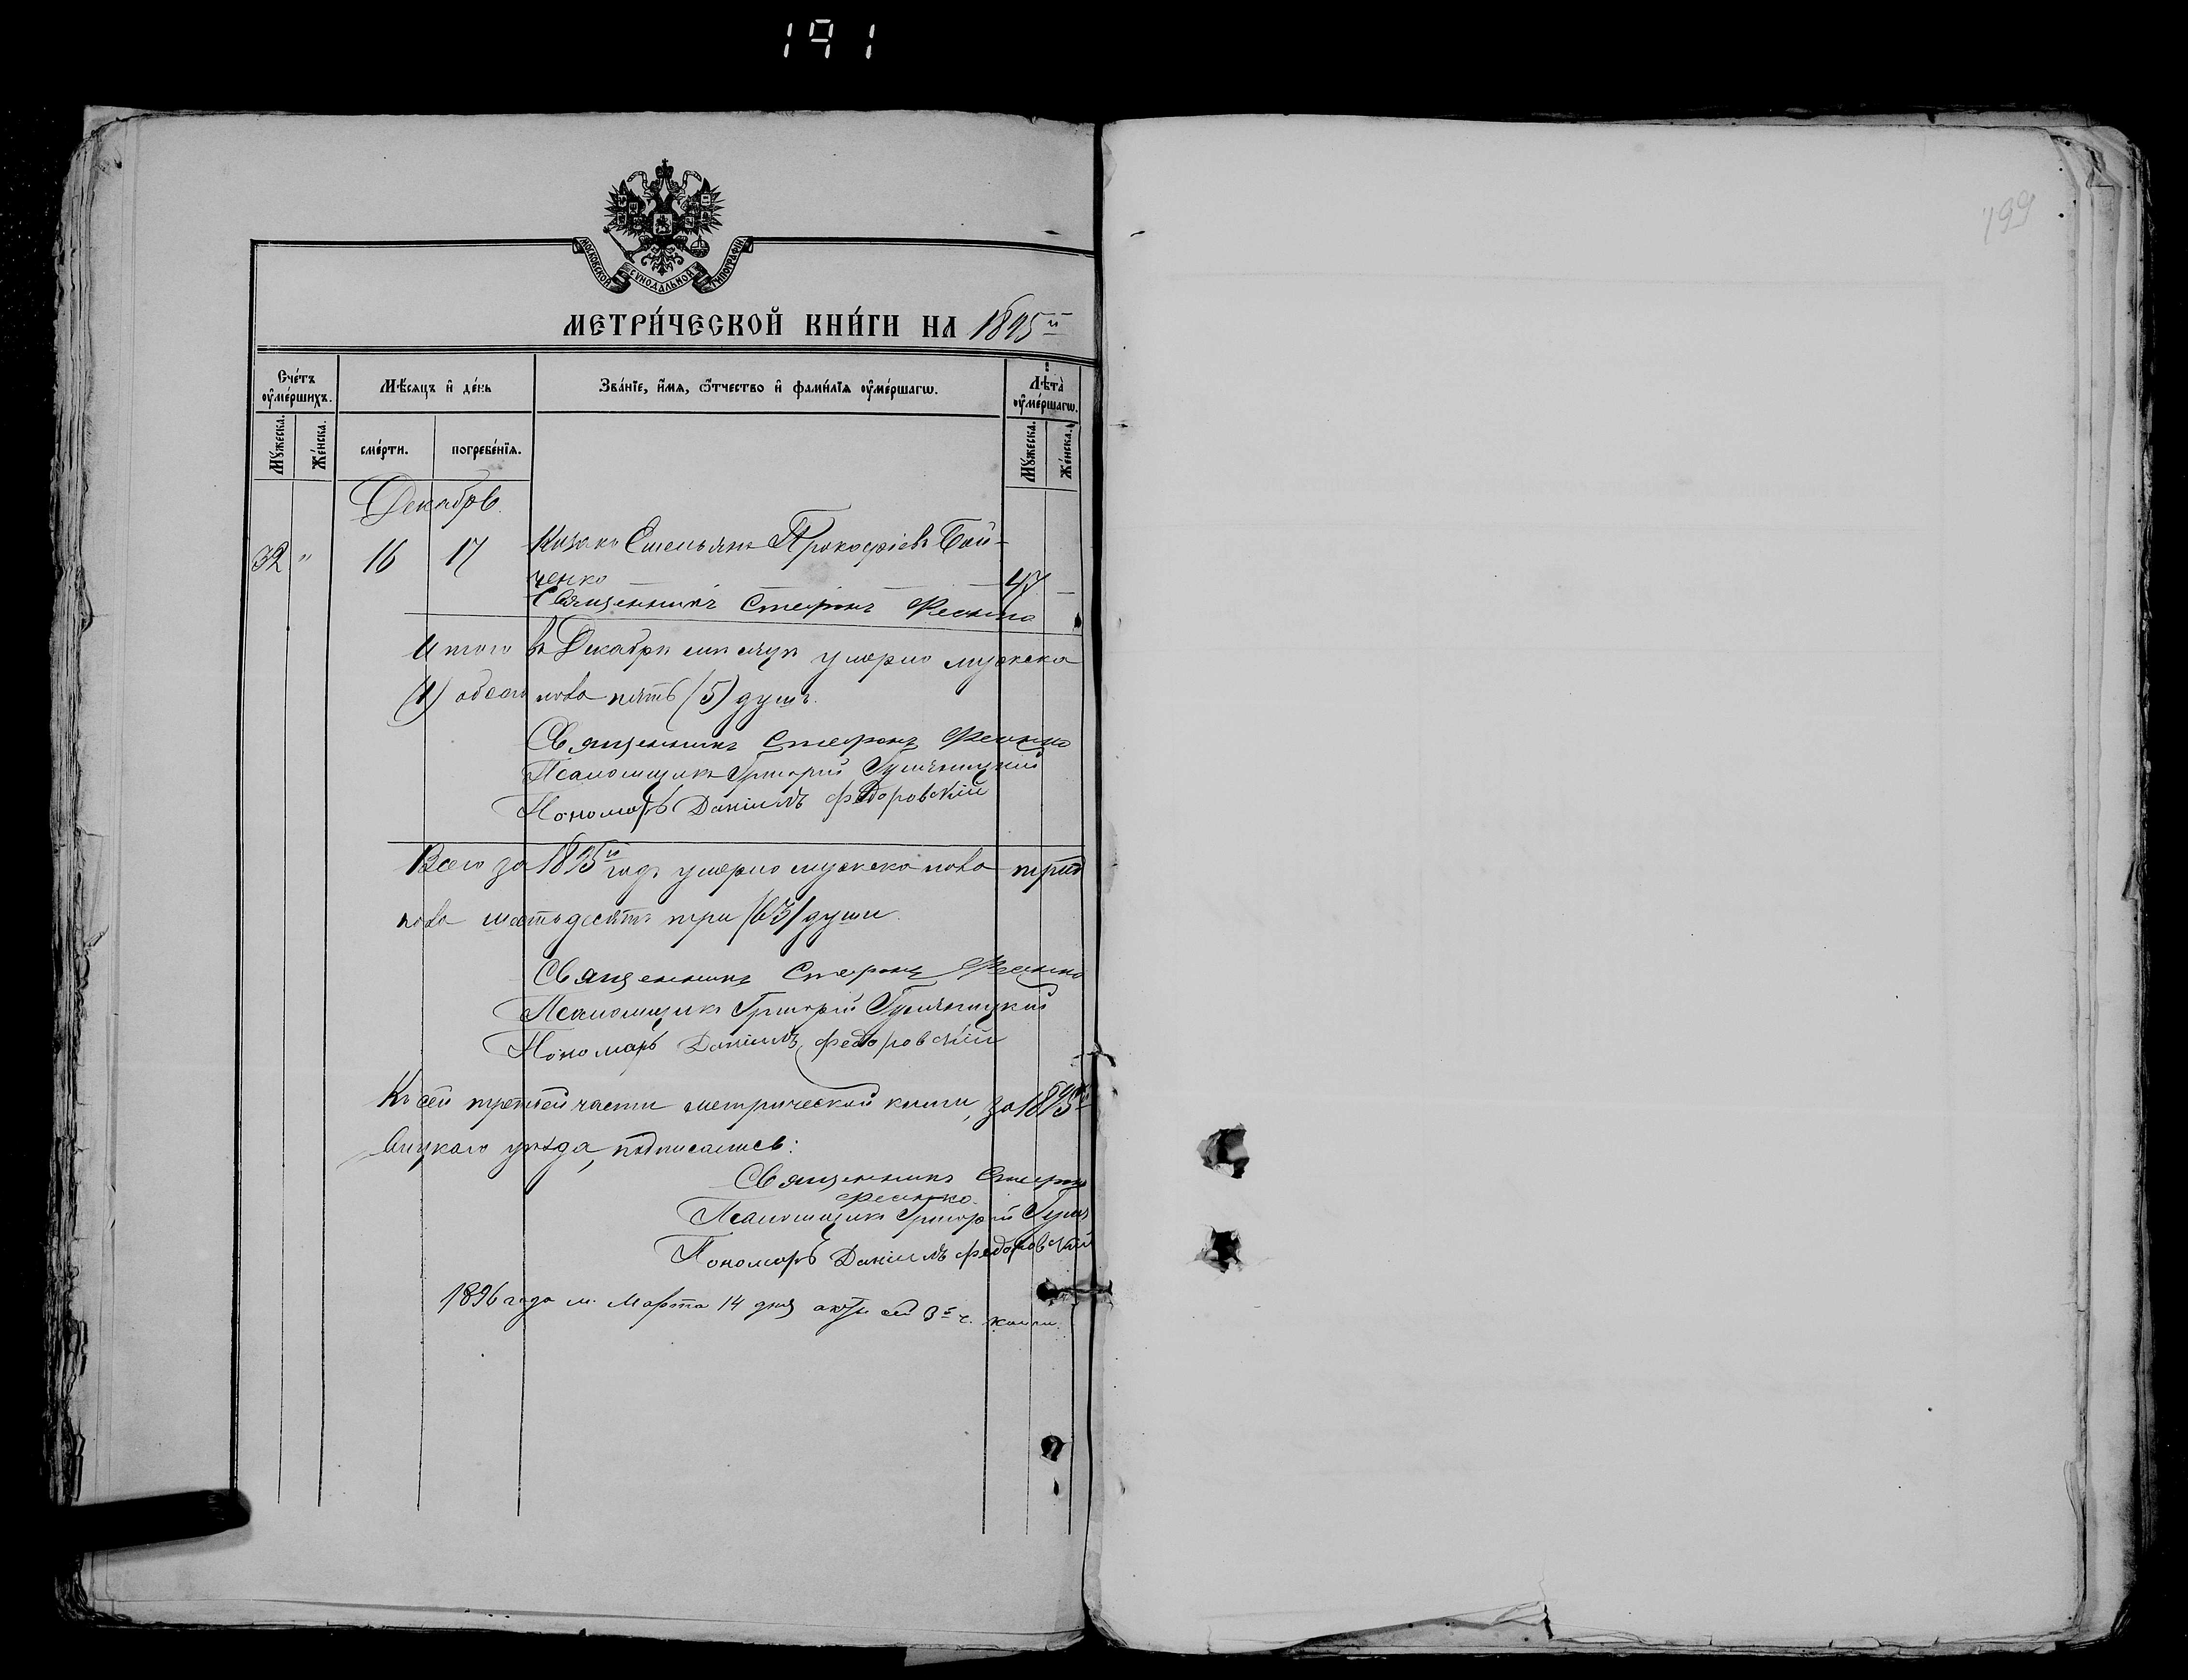 191
199
МОСКОВСКОЙ СѴНОДАЛЬНОЙ ТИПОГРАФІИ
МЕТРИ́ЧЕСКОЙ КНИ́ГИ НА 1895й
Сче́тъ ᲂу҆ме́ршихъ.
Мѣ́сяцъ и҆ де́нь
Зва́нїе, и҆́мя, ѻ҆́тчество и҆ фами́лїя ᲂу҆ме́ршагѡ.
Лѣта̀ ᲂу҆ме́ршагѡ.
Мꙋ́жеска.
Же́нска.
сме́рти.
погребе́нїя.
Мꙋ́жеска.
Же́нска.
Декабрь.
32 " 16 17 Казакъ Емельянъ Прокофіевъ Бой-
ченко 47
Священникъ Стефанъ
Итого въ Декабрѣ мѣсяцѣ умерло мужеска
(1) обоего пола пять (5) душъ.
Священникъ Стефанъ
Псаломщикъ Григорій
Пономарь Даніилъ Федоровскій
Всего за 1895й годъ умерло мужеска пола трид
пола шестьдесятъ три (63) души.
Священникъ Стефанъ
Псаломщикъ Григорій
Пономарь Даніилъ Федоровскій
Къ сей третьей части метрической книги, за 1895й
уѣзда, подписались:
Священникъ Стефанъ
Псаломщикъ Григорій
Пономарь Даніилъ Федоровскій
1896 года м. Марта 14 дня сей 3й ч. книги